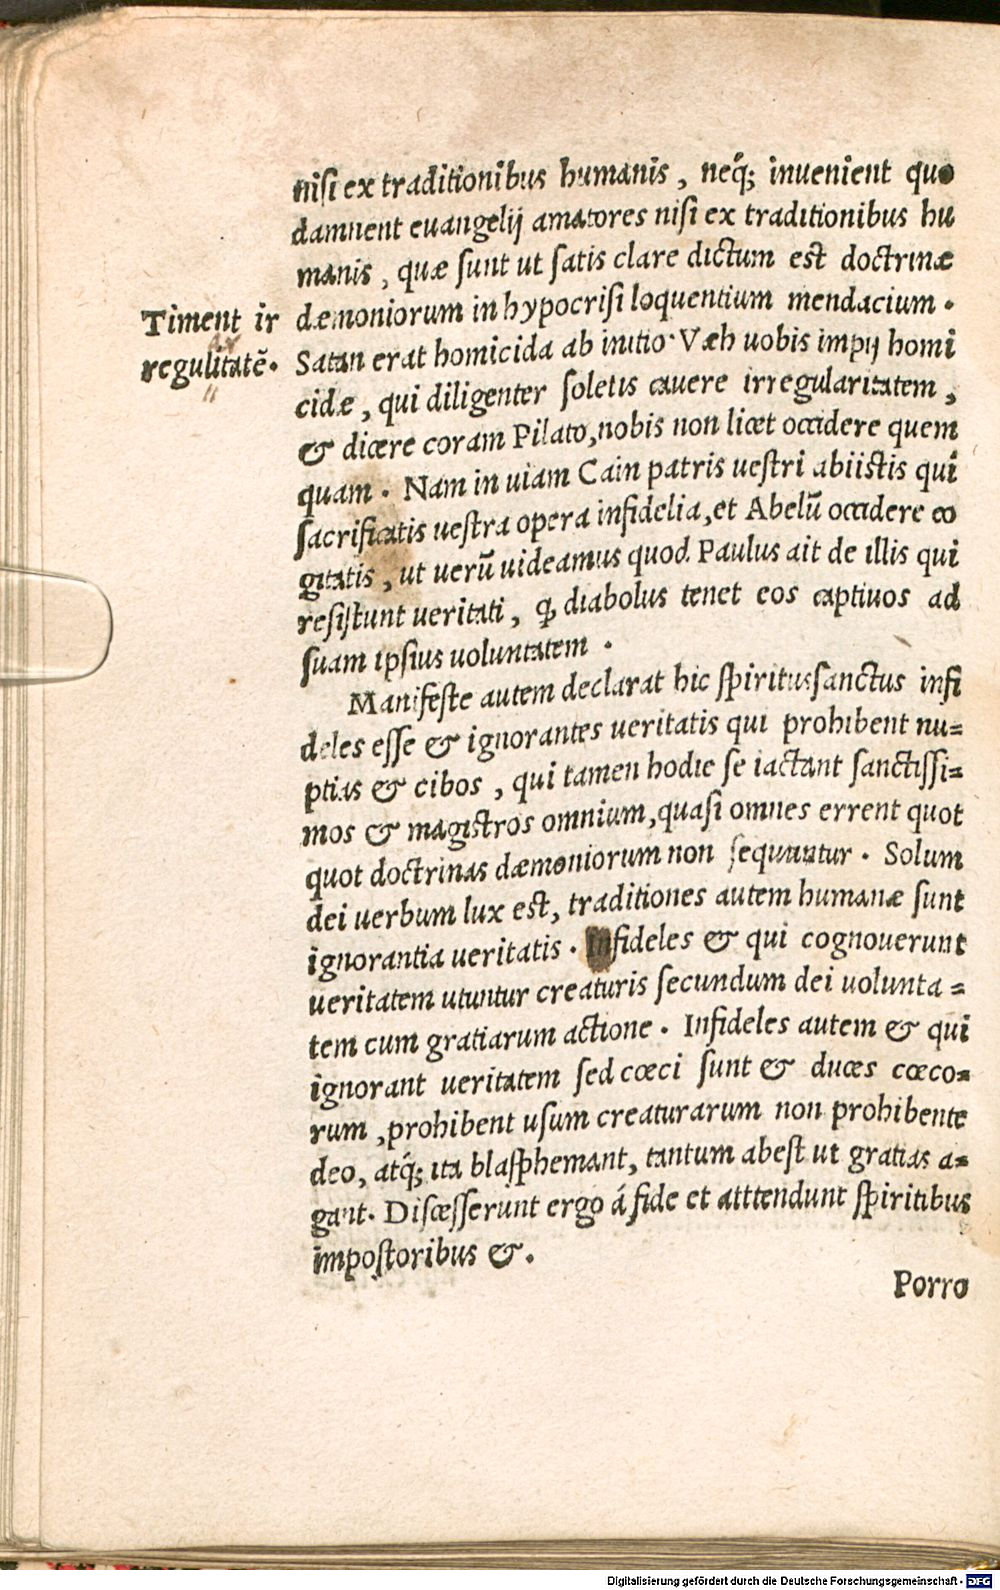 nisi ex traditionibus humanis, neq́; inuenient quo
damnent euangelij amatores nisi ex traditionibus hu
manis, quæ sunt ut satis clare dictum est doctrinæ
Timent ir
regulitatē.
ar
dæmoniorum in hypocrisi loquentium mendacium.
Satan erat homicida ab initio. Væh uobis impij homi
cidæ, qui diligenter soletis cauere irregularitatem,
& dicere coram Pilato, nobis non licet occidere quem
quam. Nam in uiam Cain patris uestri abiistis qui
sacrificatis uestra opera infidelia, et Abelū occidere co
gitatis, ut uerū uideamus quod Paulus ait de illis qui
resistunt ueritati, ꝙ diabolus tenet eos captiuos ad
suam ipsius uoluntatem.
Manifeste autem declarat hic spiritussanctus infi
deles esse & ignorantes ueritatis qui prohibent nu=
ptias & cibos, qui tamen hodie se iactant sanctissi=
mos & magistros omnium, quasi omnes errent quot
quot doctrinas dæmoniorum non sequuntur. Solum
dei uerbum lux est, traditiones autem humanæ sunt
ignorantia ueritatis. Infideles & qui cognouerunt
ueritatem utuntur creaturis secundum dei uolunta=
tem cum gratiarum actione. Infideles autem & qui
ignorant ueritatem sed cœci sunt & duces cœco=
rum, prohibent usum creaturarum non prohibente
deo, atq́; ita blasphemant, tantum abest ut gratias a=
gant. Discesserunt ergo á fide et atttendunt spiritibus
impostoribus &.
Porro
Digitalisierung gefördert durch die Deutsche Forschungsgemeinschaft - DFG